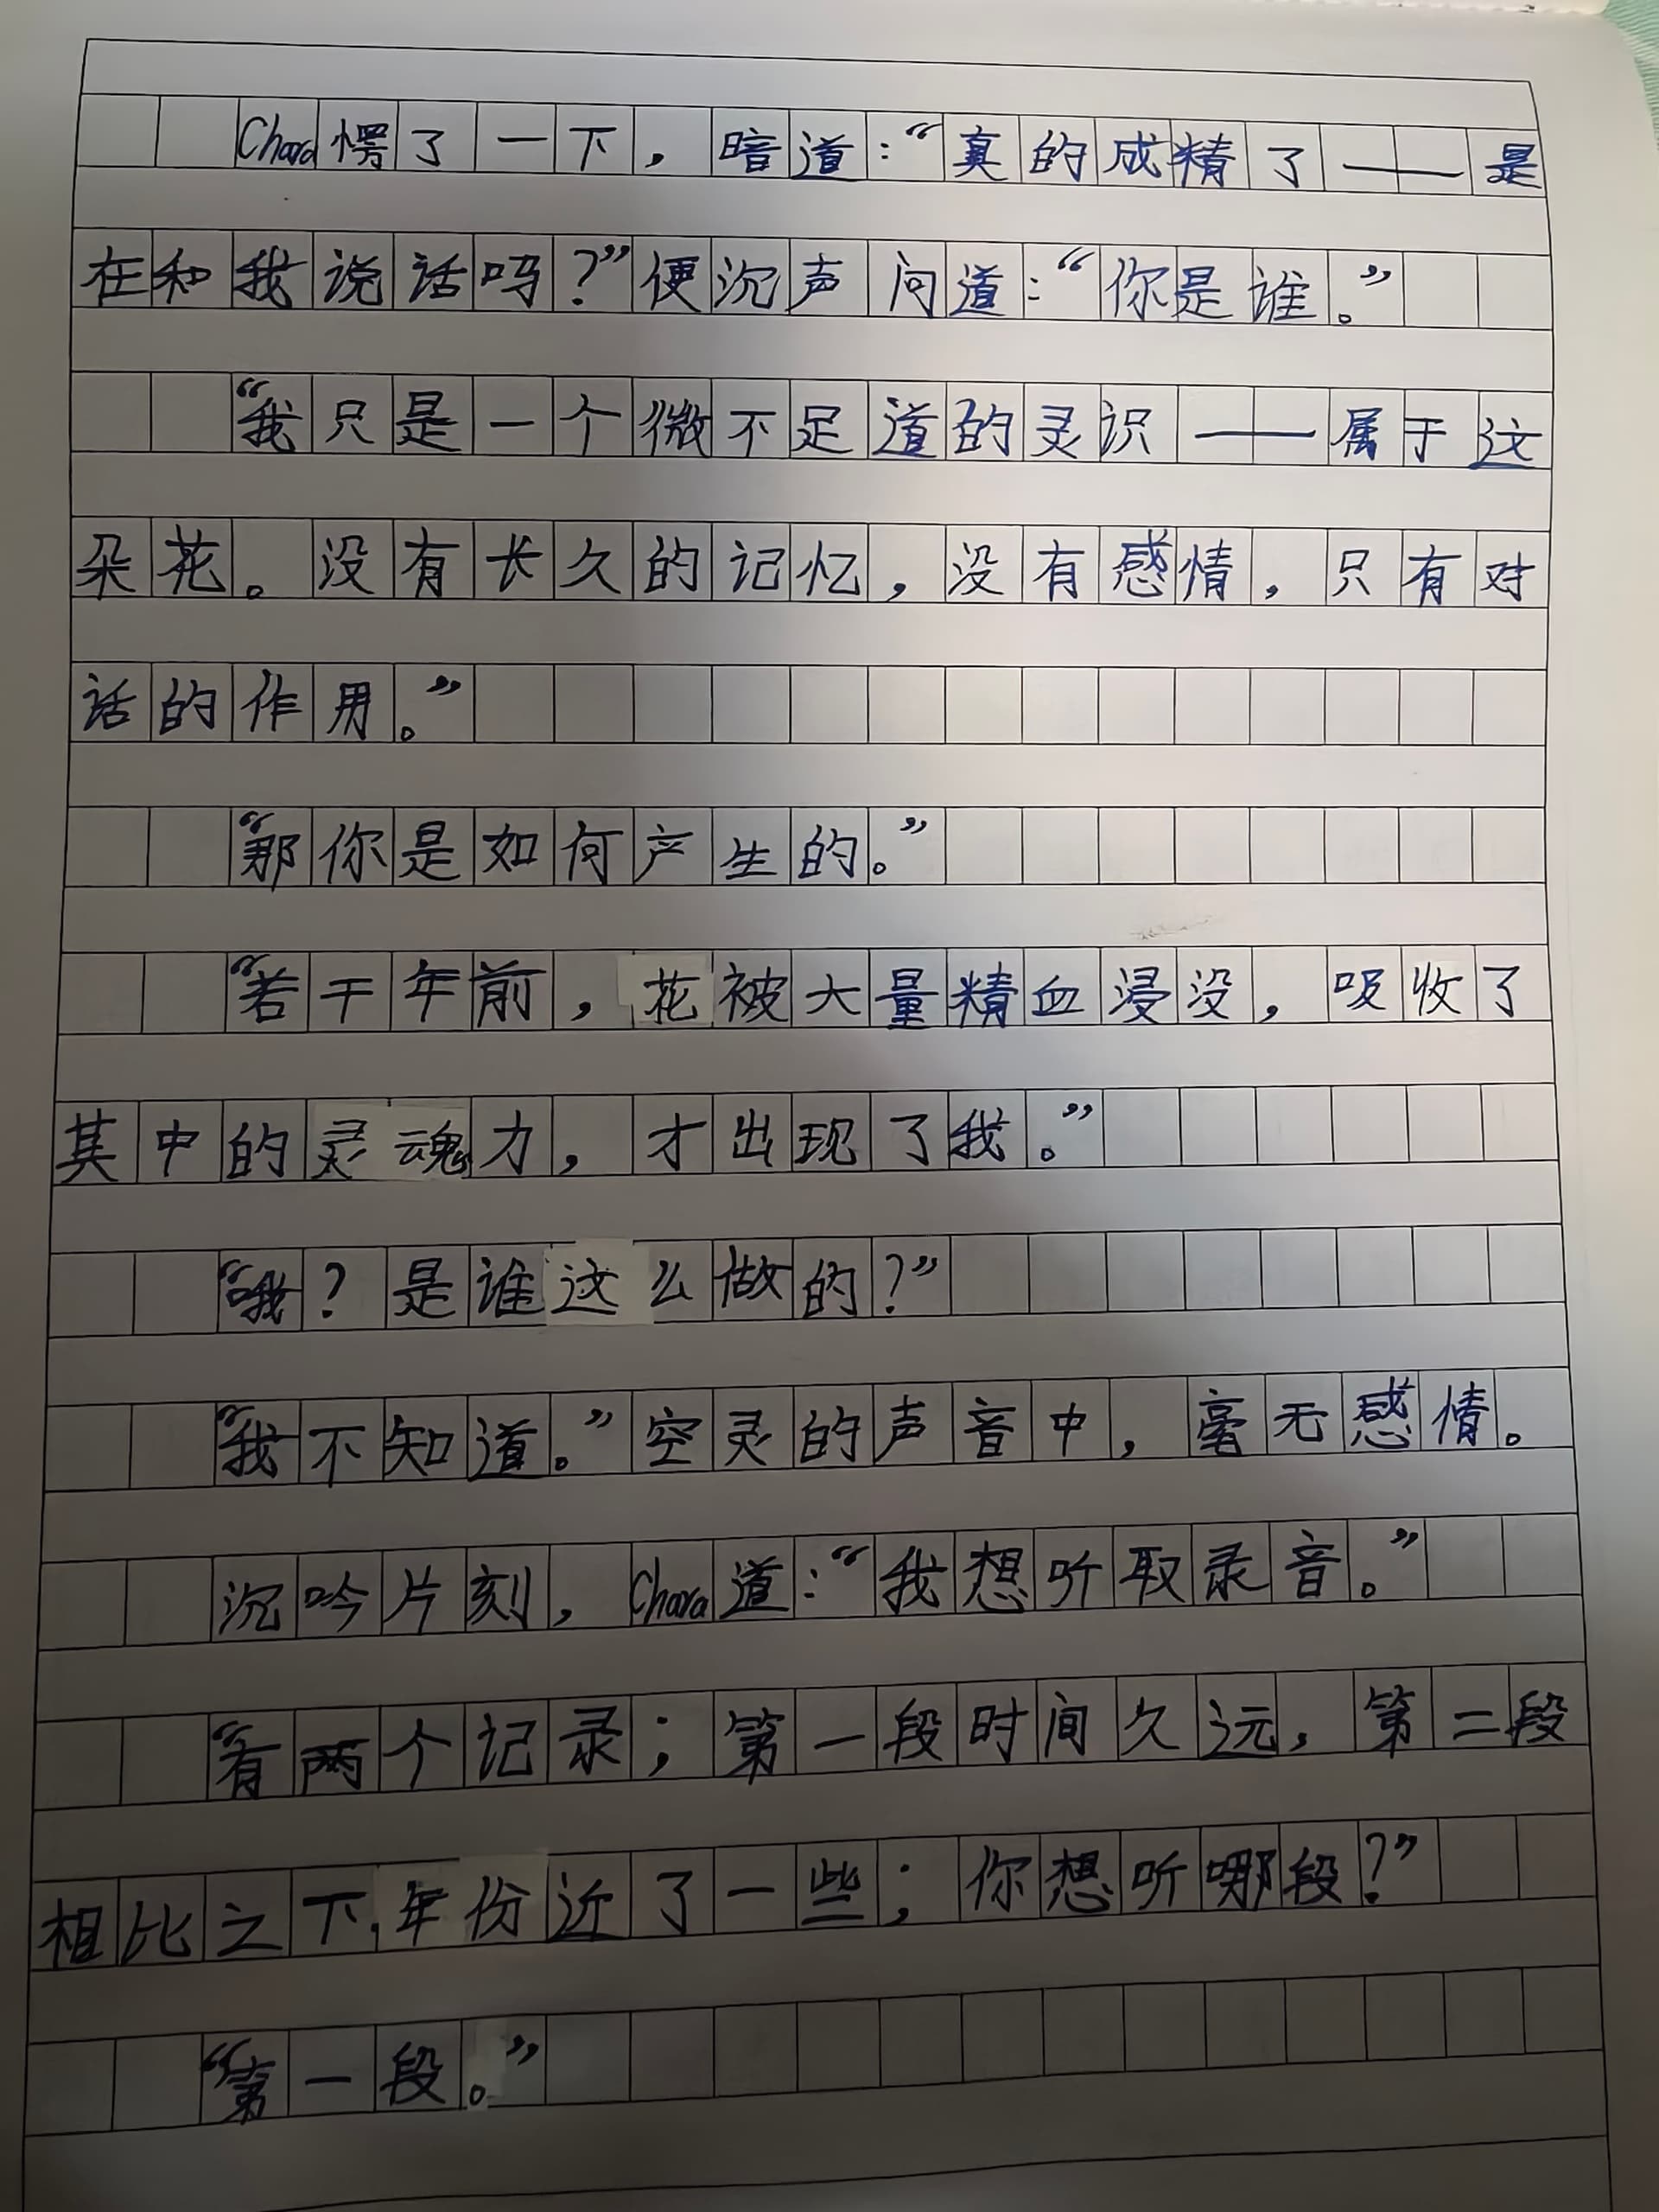 Chara愣了一下，暗道：“真的成精了——是
在和我说话吗？”便沉声问道：“你是谁。”
“我只是一个微不足道的灵识——属于这
朵花。没有长久的记忆，没有感情，只有对
话的作用。”
“那你是如何产生的。”
“若干年前，花被大量精血浸没，吸收了
其中的灵魂力，才出现了我。”
“哦？是谁这么做的？”
“我不知道。”空灵的声音中，毫无感情。
沉吟片刻，Chara道：“我想听取录音。”
“有两个记录；第一段时间久远，第二段
相比之下，年份近了一些；你想听哪段？”
“第一段。”